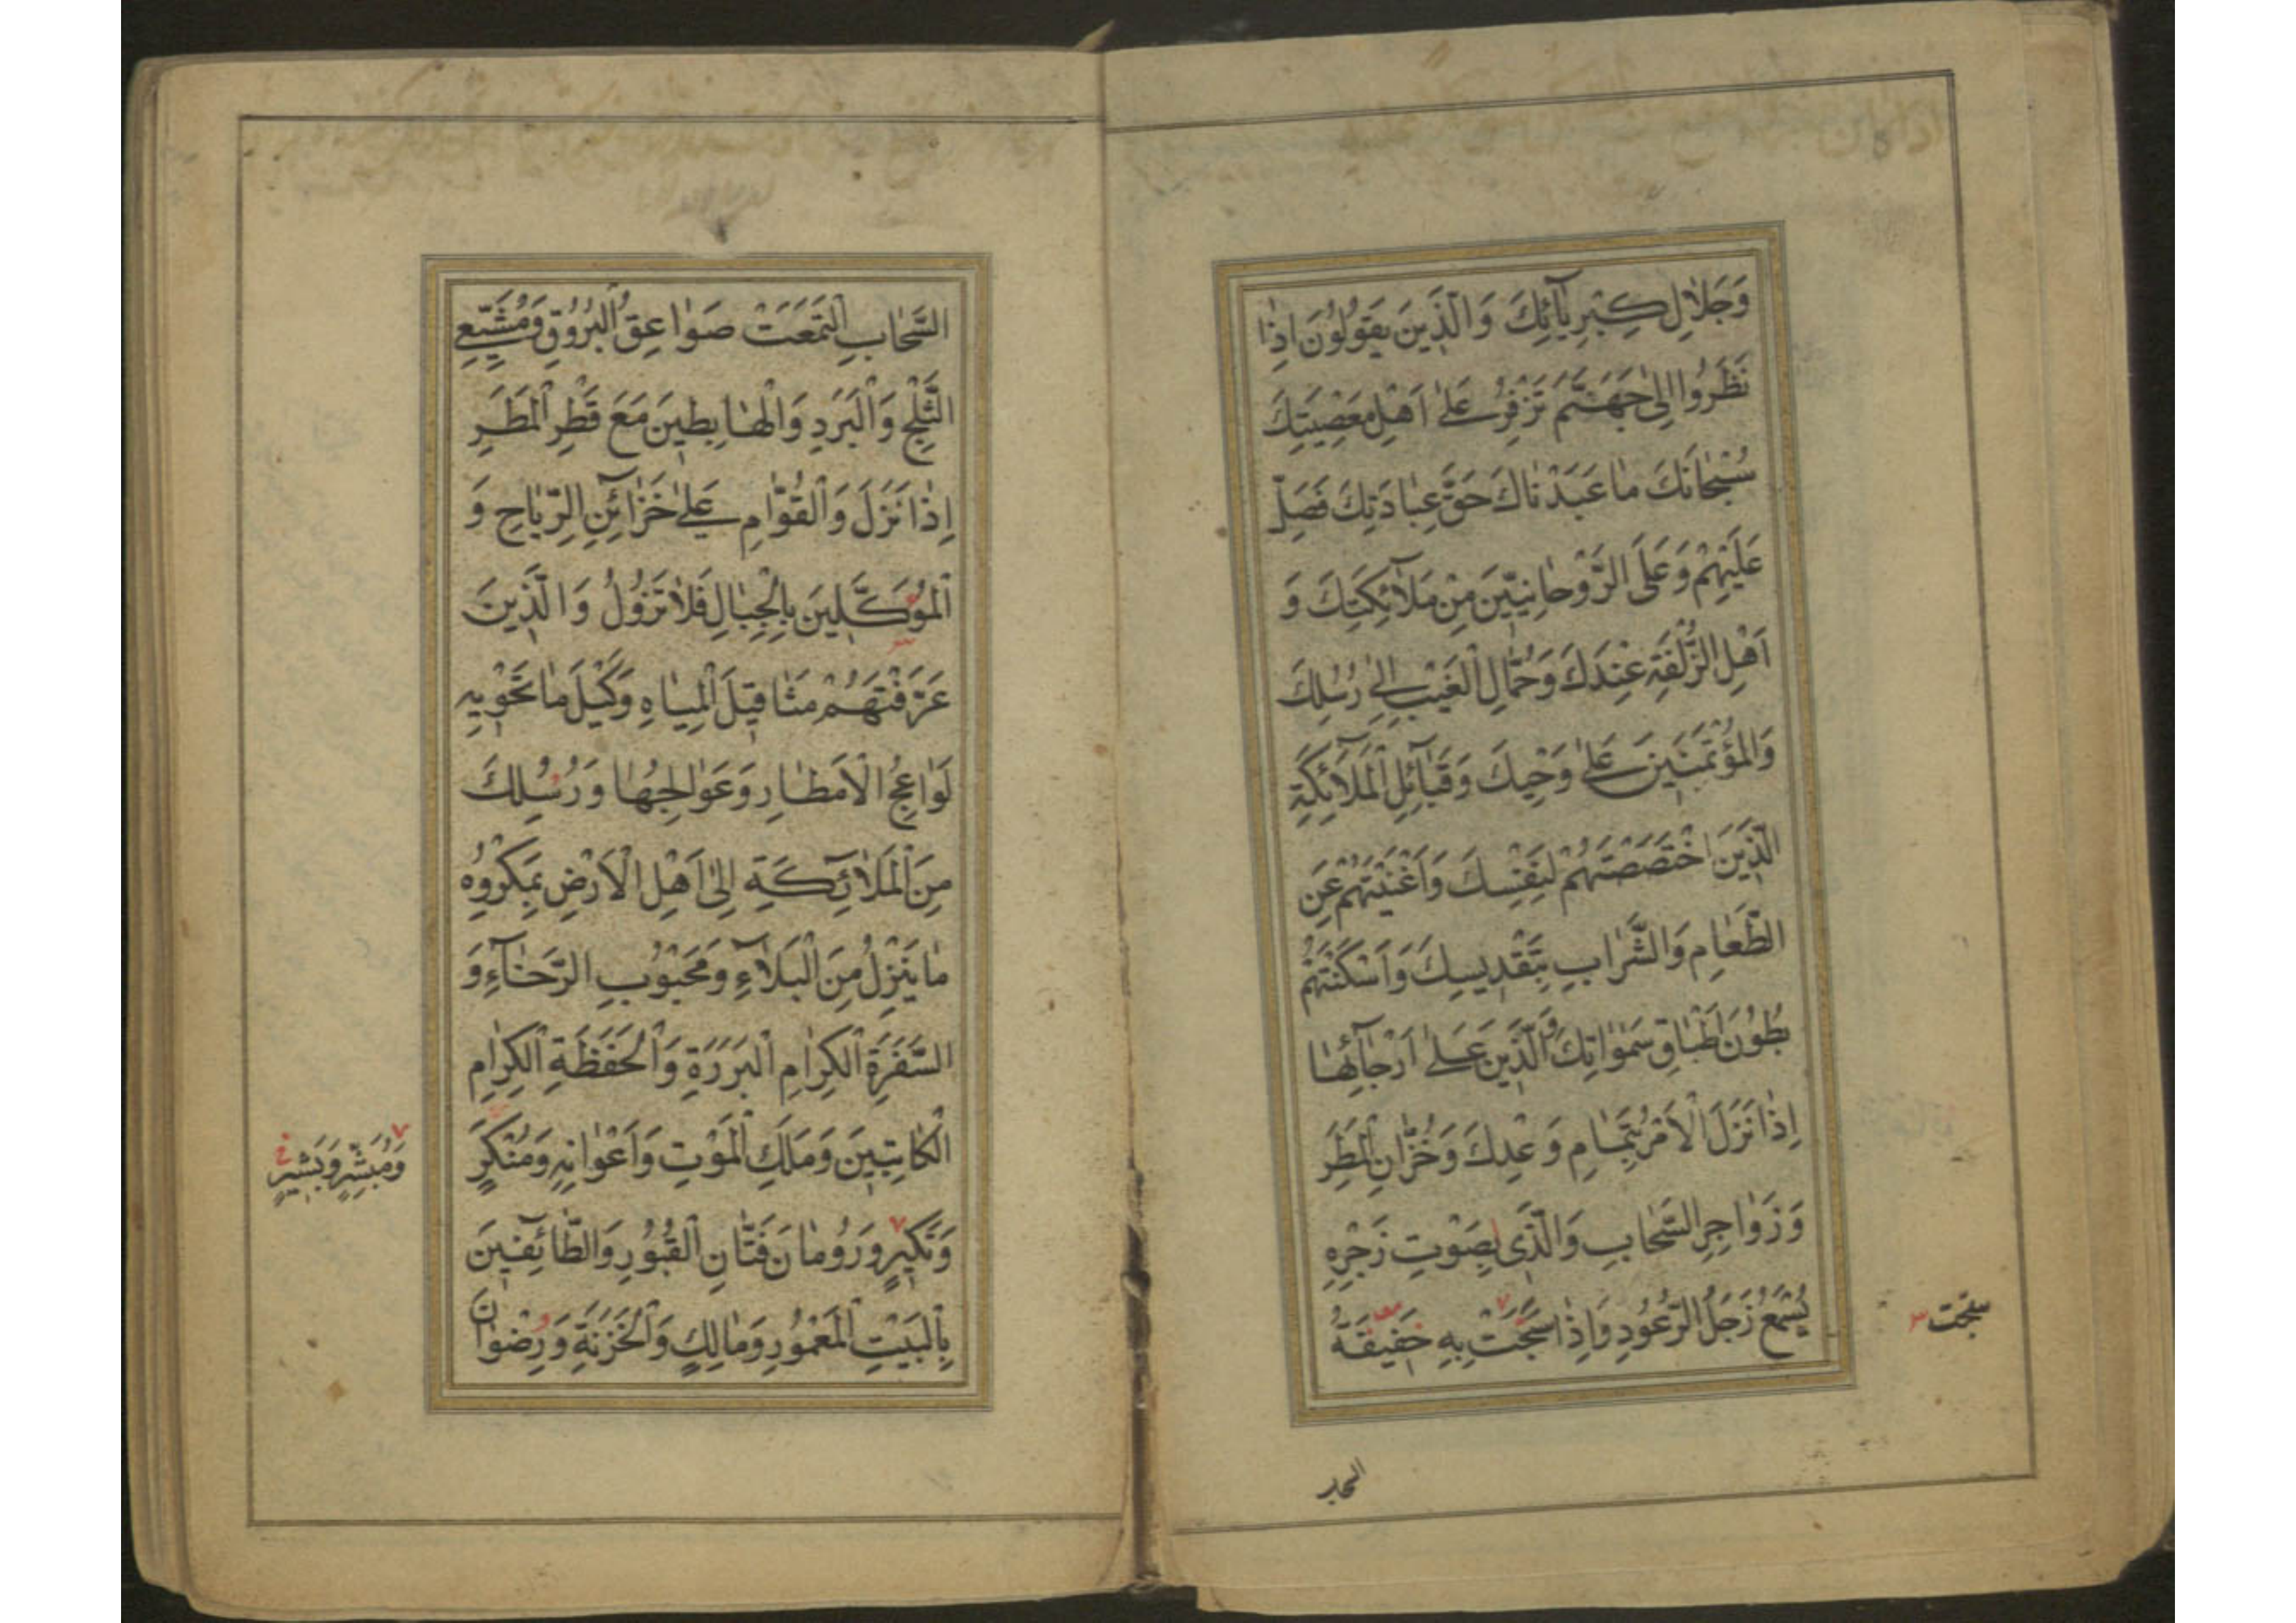 وَجَلَالِ كِبْرِيَآئِكَ وَالَّذِينَ يَقُولُونَ اِذَا
نَظَرُوا اِلىٰ جَهَنَّمَ تَزْفِرُ عَلىٰ اَهْلِ مَعْصِيَتِكَ
سُبْحَانَكَ مَا عَبَدْنَاكَ حَقَّ عِبَادَتِكَ فَصَلِّ
عَلَيْهِمْ وَعَلَى الرَّوْحَانِيّينَ مِنْ مَلَآئِكَتِكَ وَ
اَهْلِ الزُّلْفَةِ عِنْدَكَ وَحُمَّالِ الْغَيْبِ اِلىٰ رُسُلِكَ
وَالْمُؤْتَمَنِينَ عَلىٰ وَحْيِكَ وَقَبَآئِلِ الْمَلَآئِكَةِ
الَّذِينَ اخْتَصَصْتَهُمْ لِنَفْسِكَ وَاَغْنَيْتَهُمْ عَنِ
الطَّعَامِ وَالشَّرَابِ بِتَقْدِيسِكَ وَاَسْكَنْتَهُمْ
بُطُونَ اَطْبَاقِ سَمٰوَاتِكَ وَالَّذِينَ عَلىٰ اَرْجَآئِهَا
اِذَا نَزَلَ الْاَمْرُ بِتَمَامِ وَعْدِكَ وَخُزَّانِ الْمَطَرِ
وَزَوَاجِرِ السَّحَابِ وَالَّذِى بِصَوْتِ زَجْرِهِ
يُسْمَعُ زَجَلُ الرُّعُودِ وَاِذَا سَبَحَتْ بِهِ حَفِيفَةُ
السحاب
السَّحَابِ الْتَمَعَتْ صَوَاعِقُ الْبُرُوقِ وَمُشَيِّعِى
الثَّلْجِ وَالْبَرَدِ وَالْهَابِطِينَ مَعَ قَطْرِ الْمَطَرِ
اِذَا نَزَلَ وَالْقُوَّامِ عَلىٰ خَزَآئِنِ الرِّيَاحِ وَ
الْمُوَكَّلِينَ بِالْجِبَالِ فَلَا تَزُولُ وَالَّذِينَ
عَرَّفْتَهُمْ مَثَاقِيلَ الْمِيَاهِ وَكَيْلَ مَا تَحْوِيهِ
لَوَاعِجُ الْاَمْطَارِ وَعَوَالِجُهَا وَرُسُلِكَ
مِنَ الْمَلَآئِكَةِ اِلىٰ اَهْلِ الْاَرْضِ بِمَكْرُوهِ
مَا يَنْزِلُ مِنَ الْبَلَآءِ وَمَحْبُوبِ الرَّخَآءِ وَ
السَّفَرَةِ الْكِرَامِ الْبَرَرَةِ وَالْحَفَظَةِ الْكِرَامِ
الْكَاتِبِينَ وَمَلَكِ الْمَوْتِ وَاَعْوَانِهِ وَمُنْكَرٍ
وَمُبَشِّرٍ وَبَشِيرٍ خ
وَنَكِيرٍ وَرُومَانَ فَتَّانِ الْقُبُورِ وَالطَّآئِفِينَ
بِالْبَيْتِ الْمَعْمُورِ وَمَالِكٍ وَالْخَزَنَةِ وَرِضْوَانَ